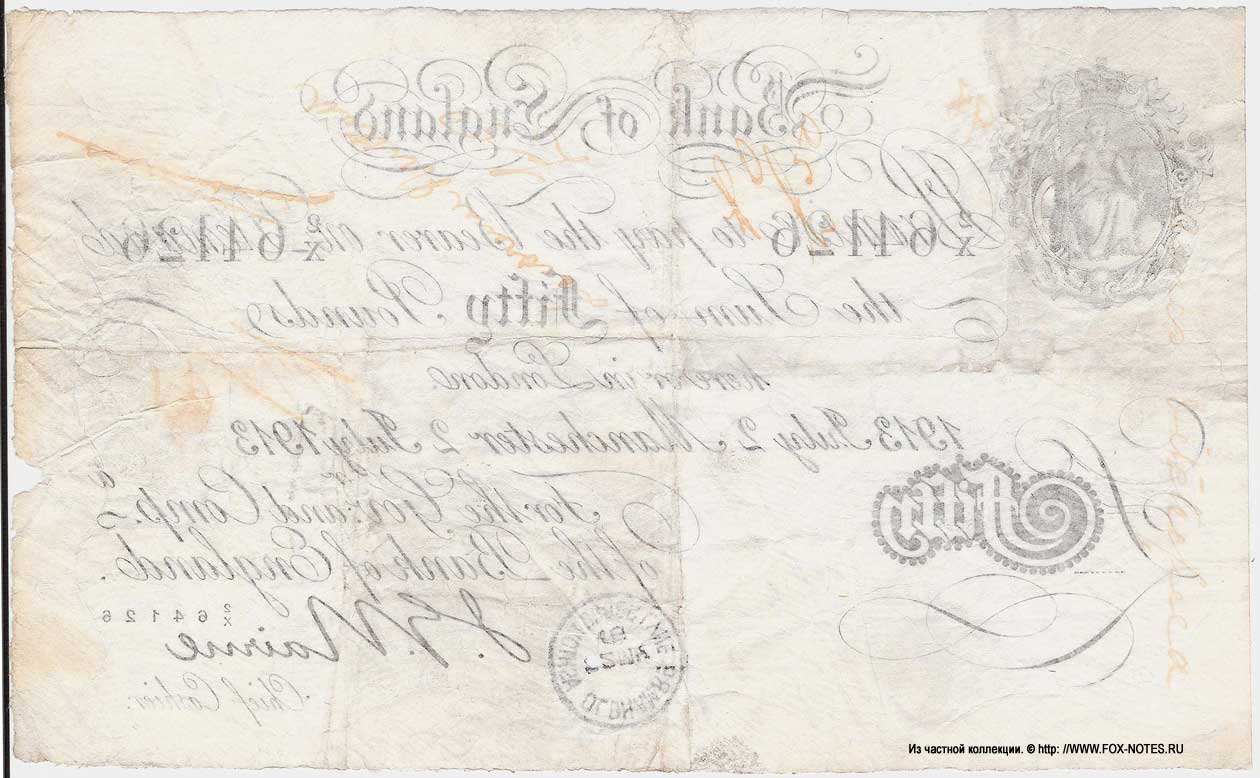 Bank of England
2/X 64126 to pay the Bearer on 2/X 64126
the Sum of Fifty Pounds
here or in London
1913 July 2 Manchester 2 July 1913
For the Govr. and Compa.
of the Bank of England.
2/X 64126
J. G. Nairne
Chief Cashier.
Fifty
OLDHAM
Из частной коллекции. © http: //WWW.FOX-NOTES.RU